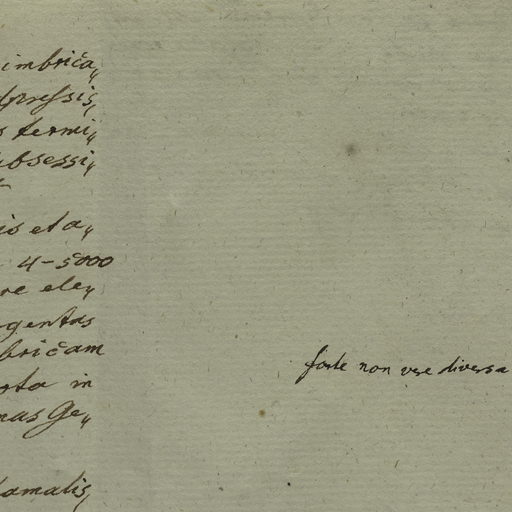 imbrica„
dpressis,
s termi„
ubsessi„
is ela„
4-5000
re ele„
gentas
bricam
ota in
nas Ge„
lamalis,
forte non vere diversa